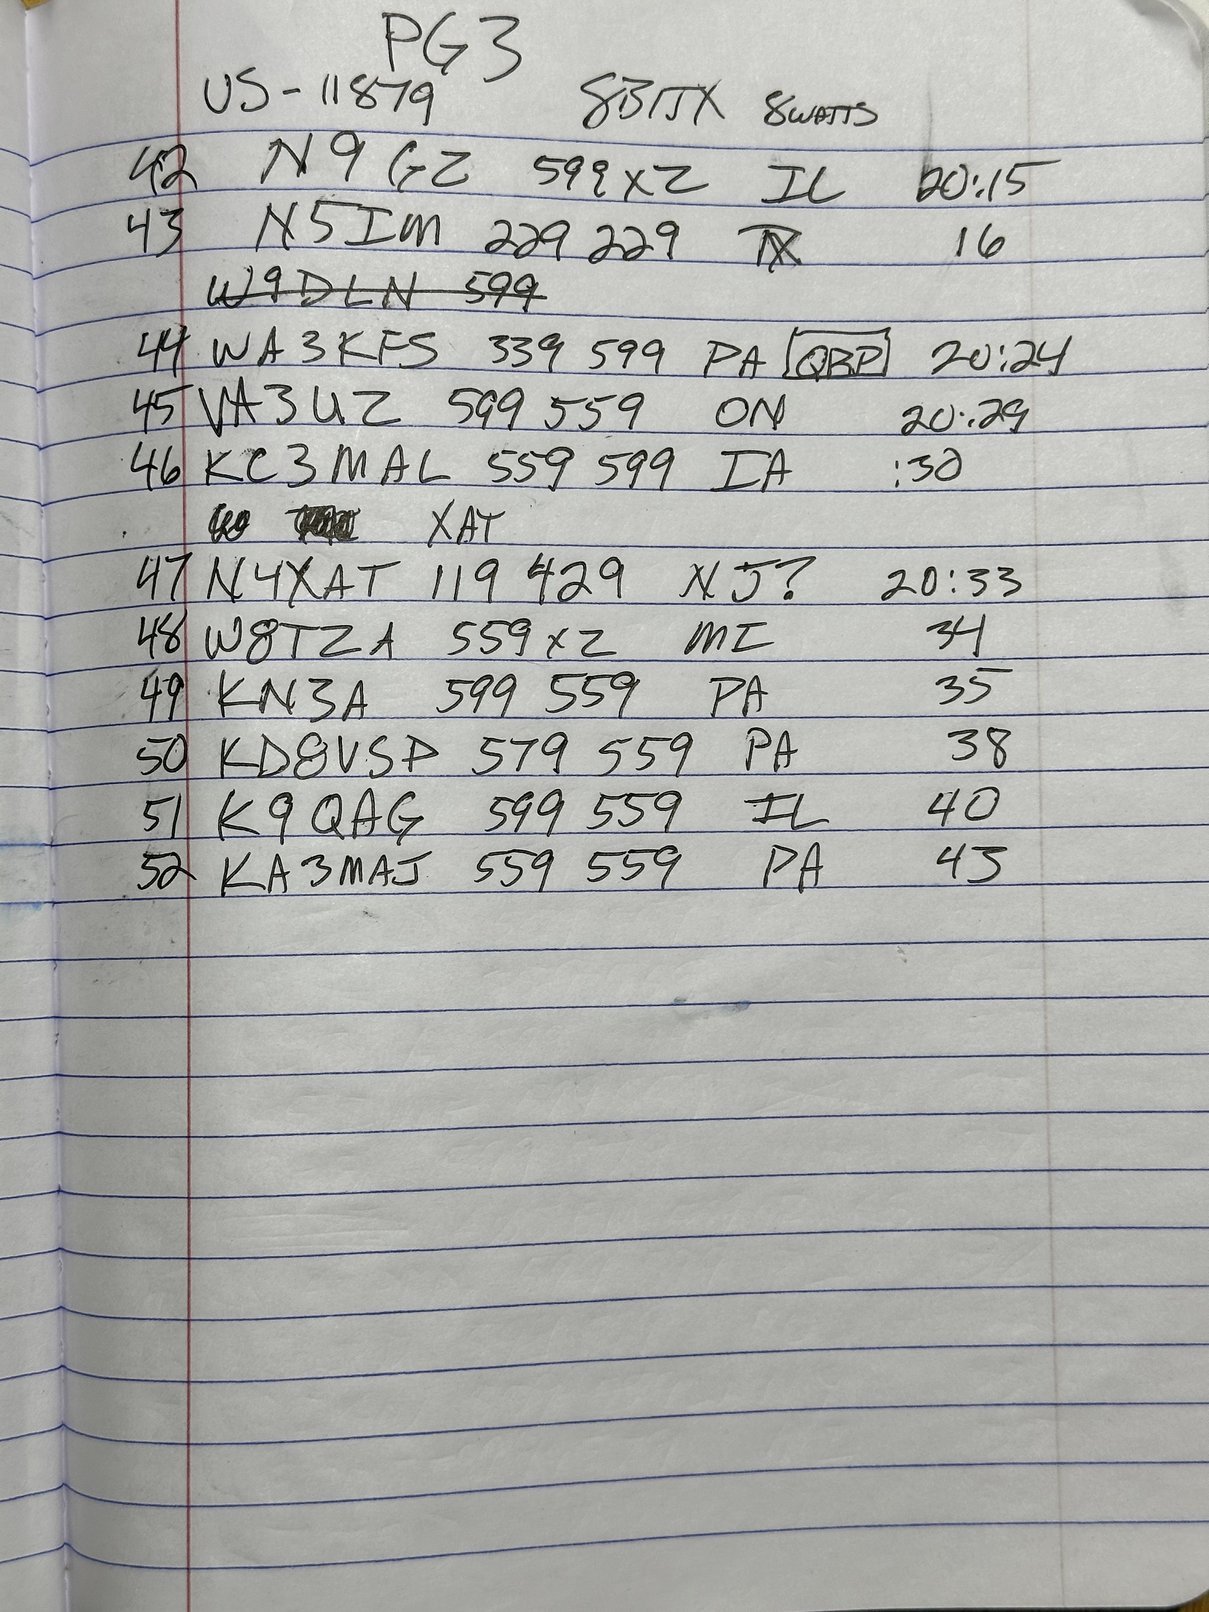 PG3
US-11879 8BITX 8WATTS
42 N9GZ 599 x2 IL 20:15
43 N5IM 229 229 TX 16
W9DLN 599
44 WA3KFS 339 599 PA QRP 20:24
45 VA3UZ 599 559 ON 20:29
46 KC3MAL 559 599 IA :30
XAT
47 N4XAT 119 429 NJ? 20:33
48 W8TZA 559 x2 MI 34
49 KN3A 599 559 PA 35
50 KD8VSP 579 559 PA 38
51 K9QAG 599 559 IL 40
52 KA3MAJ 559 559 PA 43